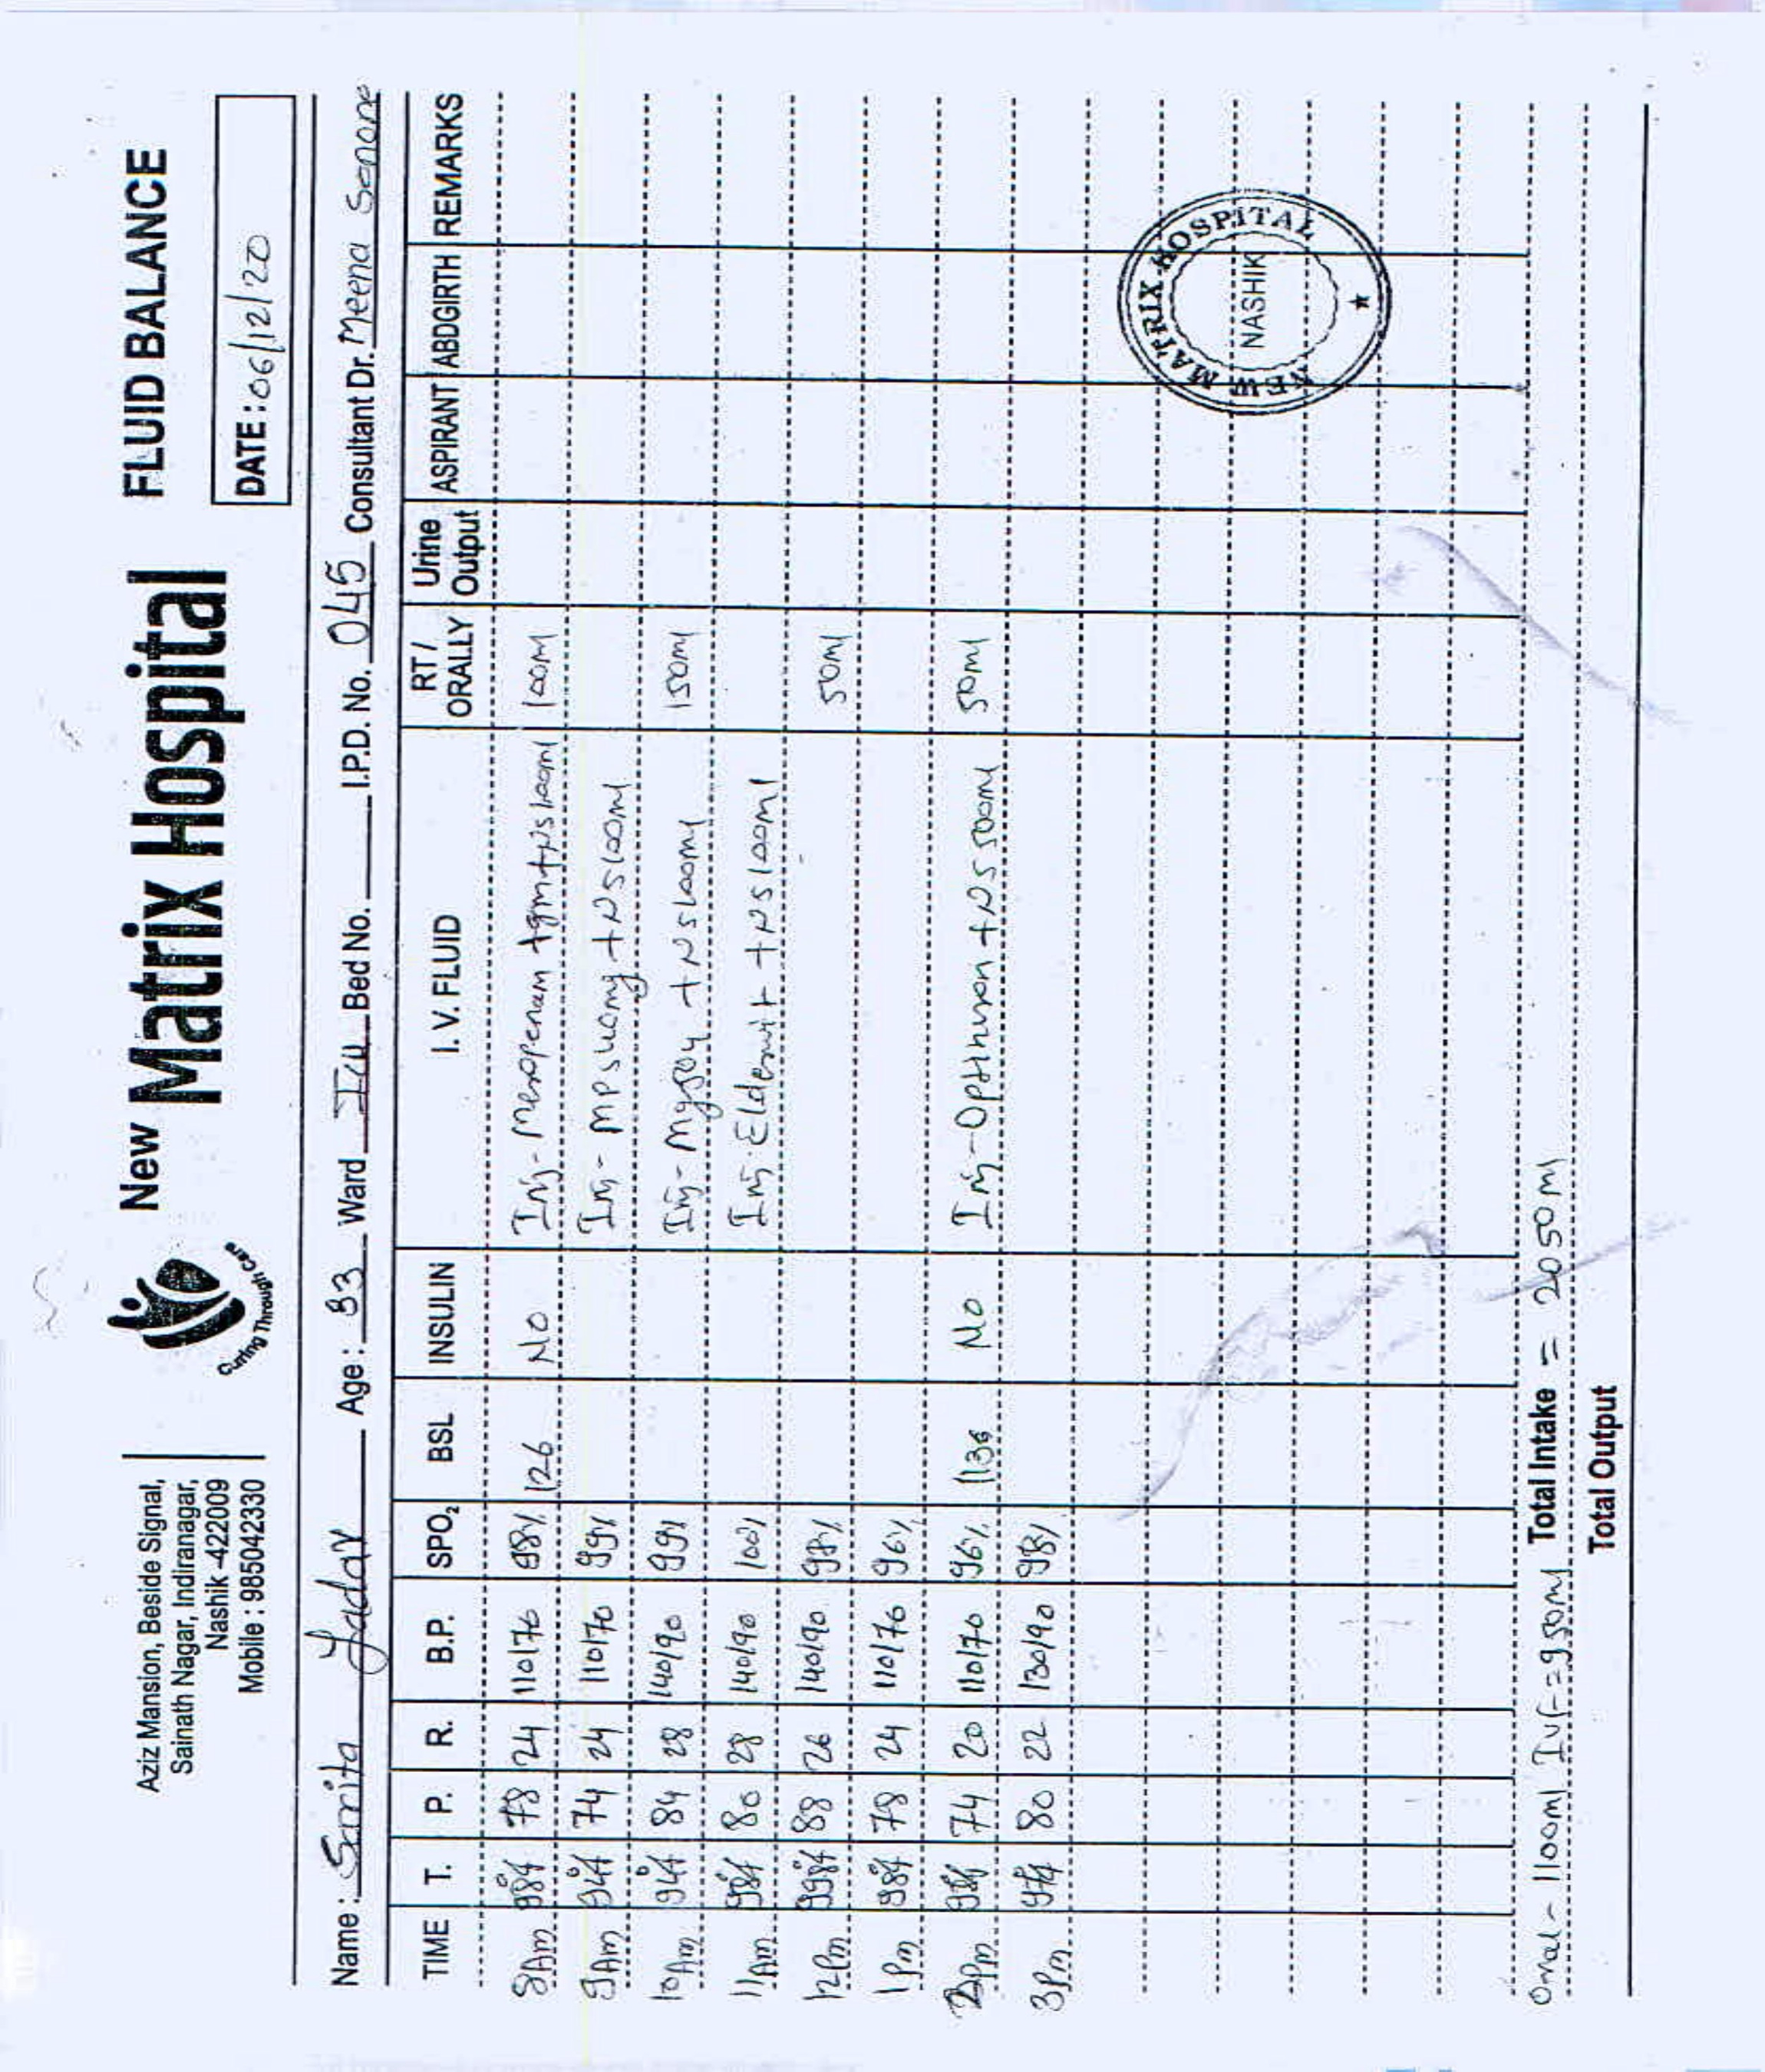 Aziz Mansion, Beside Signal,
Sainath Nagar, Indiranagar,
Nashik -422009
Mobile : 985042330
Curing Through Care
New Matrix Hospital
FLUID BALANCE
DATE : 06/12/20
Name : Yadav Age : 83 Ward ICU Bed No. I.P.D. No. 045 Consultant Dr. Meena Sonone
TIME T. P. R. B.P. SPO2 BSL INSULIN I. V. FLUID RT / ORALLY Urine Output ASPIRANT ABDGIRTH REMARKS
8Am 78 24 110/70 98% 126 No Inj- Meropenam 1gm+NS100ml 100ml
9Am 74 24 110/70 99% Inj- MPS + NS100ml
10Am 84 28 140/90 99% Inj- MgSO4 + NS100ml 150ml
11Am 80 28 140/90 100% Inj. Eldervit + NS100ml
12Pm 88 26 140/90 98% 50ml
1Pm 78 24 110/70 96%
2Pm 74 20 110/70 96% 136 No Inj- + NS500ml 50ml
3Pm 80 22 130/90 98%
NEW MATRIX HOSPITAL
NASHIK
Oral - 1100ml IVF = 950ml Total Intake = 2050ml
Total Output